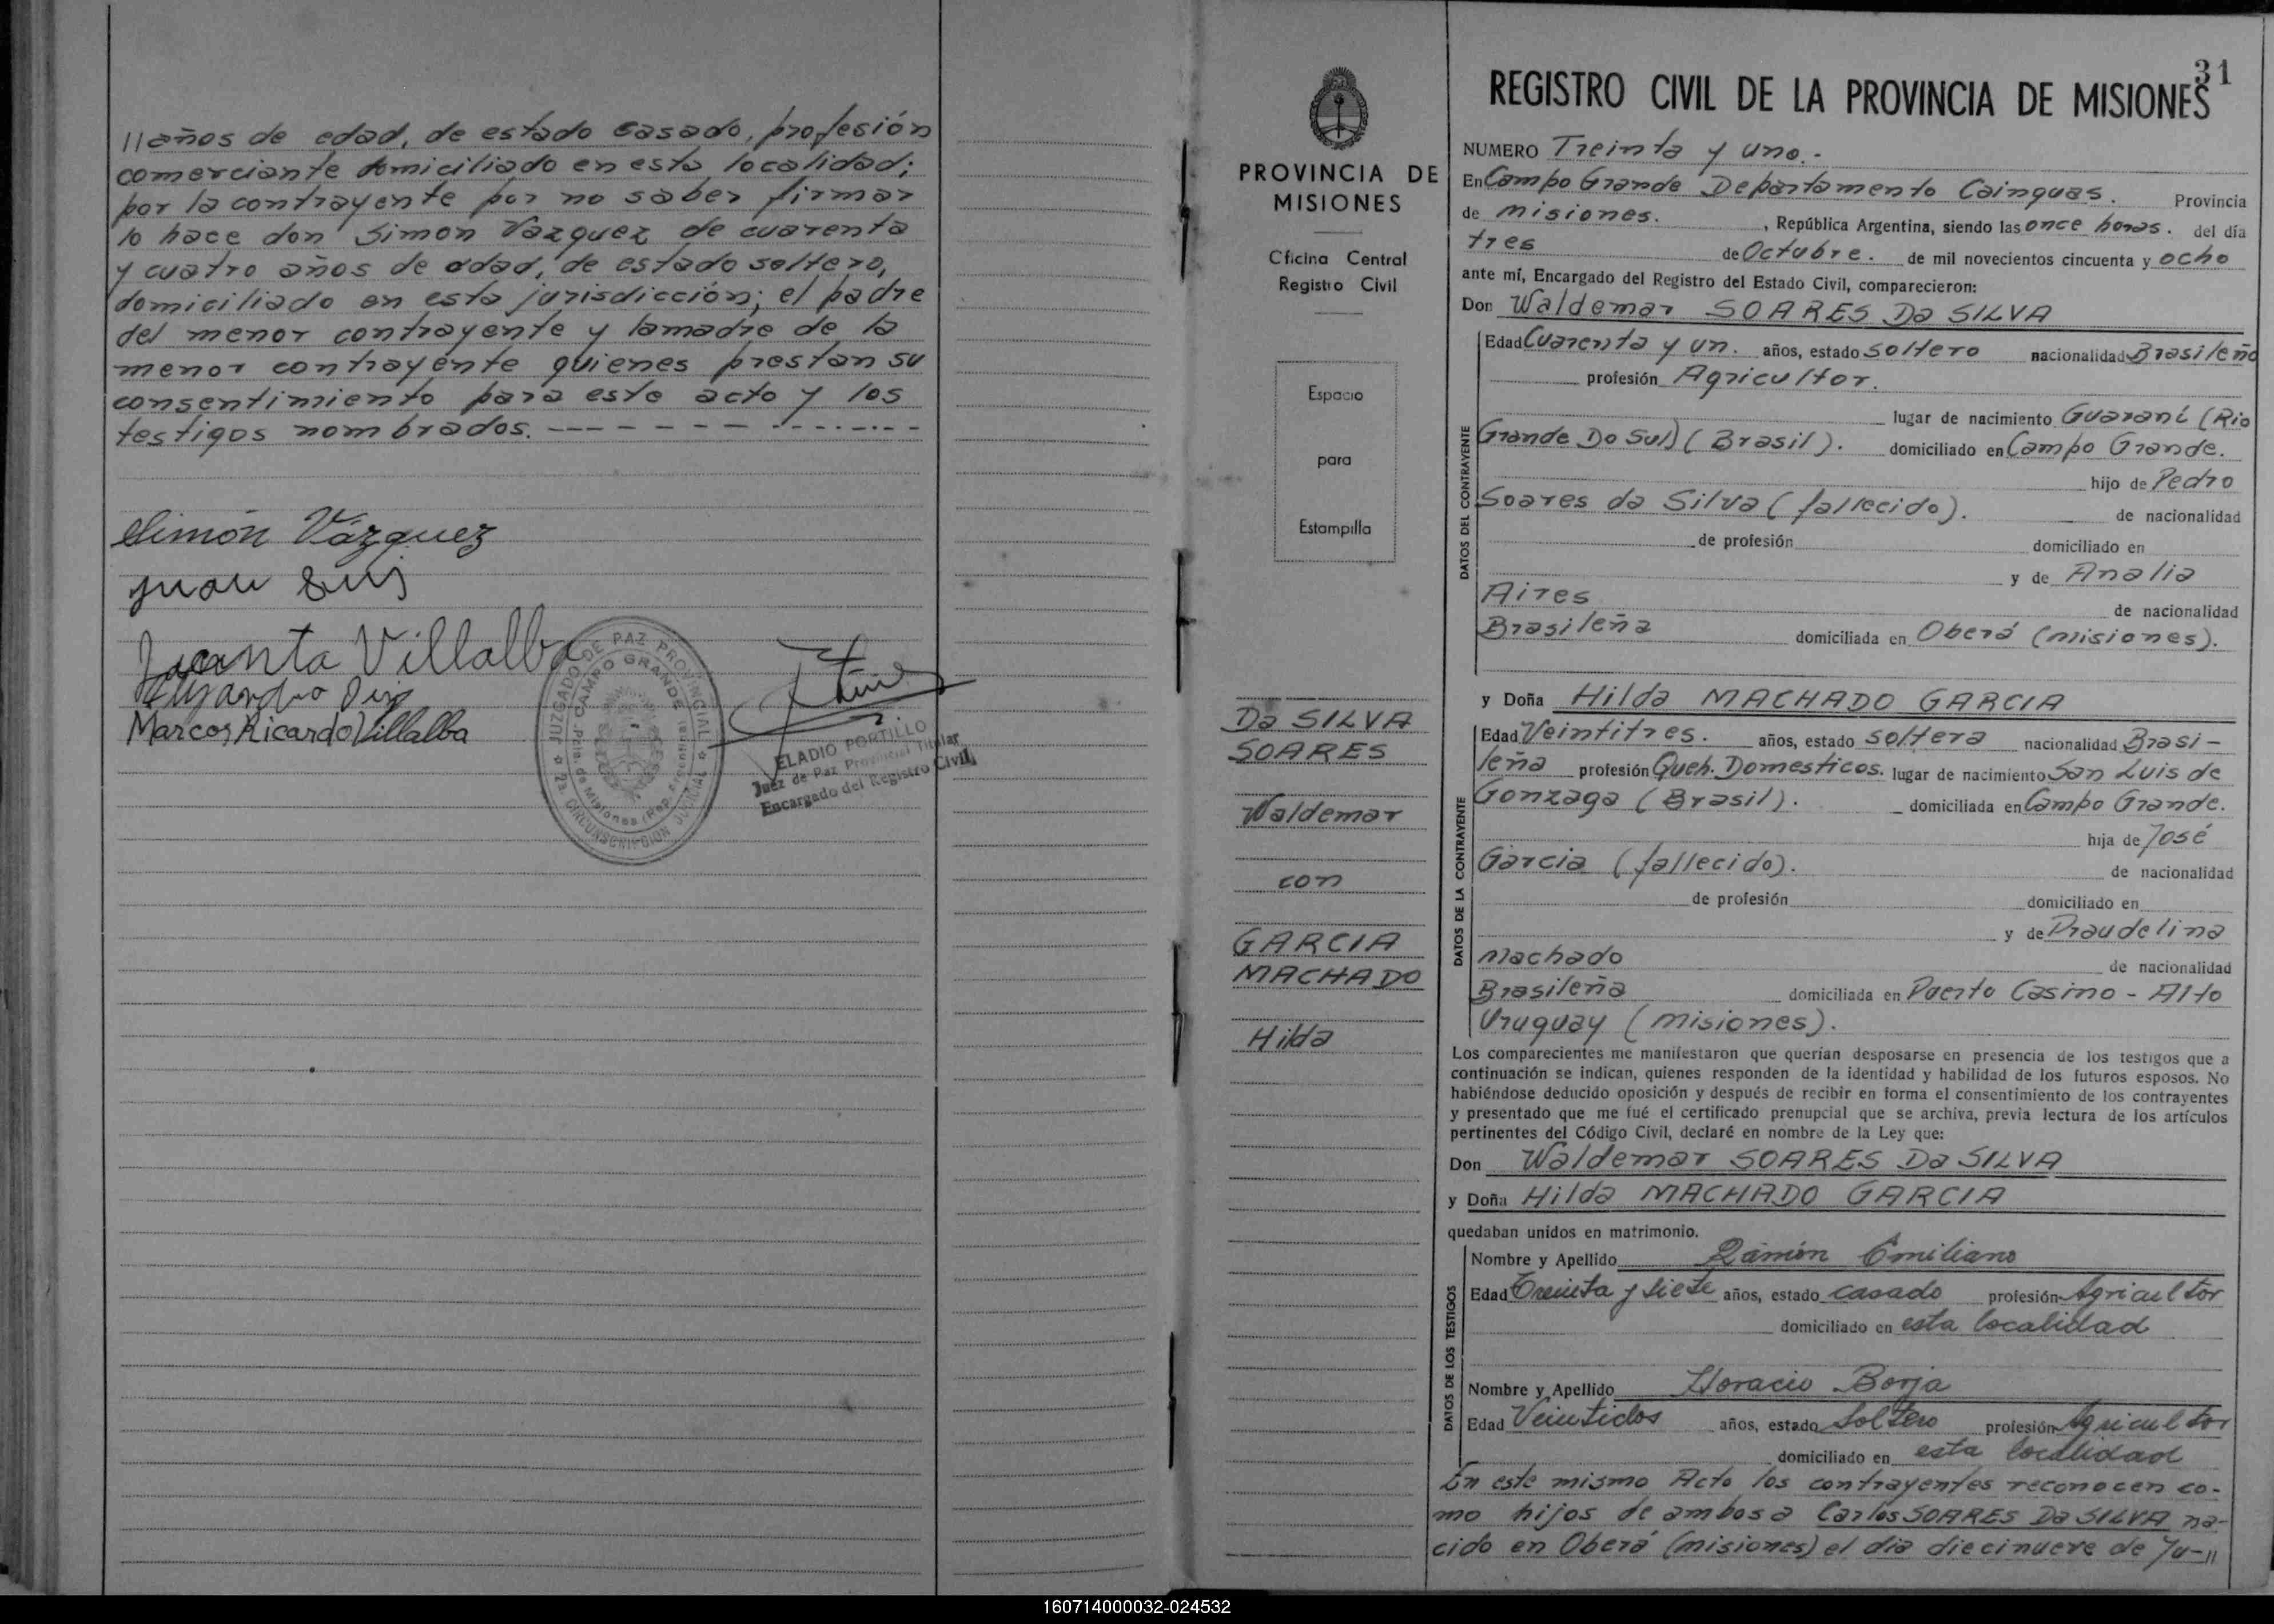 //años de edad, de estado casado, profesión
comerciante domiciliado en esta localidad;
por la contrayente por no saber firmar
lo hace don Simon Vazquez de cuarenta
y cuatro años de edad, de estado soltero,
domiciliado en esta jurisdicción; el padre
del menor contrayente y lamadre de la
menor contrayente quienes prestan su
consentimiento para este acto y los
testigos nombrados. - - - - - - - - - - - -
Simón Vázquez
Juan
Jacinta Villalba
Marcos Ricardo Villalba
JUZGADO DE PAZ PROVINCIAL
CAMPO GRANDE
Pcia. de Misiones (Rep. Argentina)
2a. CIRCUNSCRIPCION JUDICIAL
ELADIO PORTILLO
Juez de Paz Provincial Titular
Encargado del Registro Civil
PROVINCIA DE
MISIONES
Oficina Central
Registro Civil
Espacio
para
Estampilla
Da SILVA
SOARES
Waldemar
con
GARCIA
MACHADO
Hilda
31
REGISTRO CIVIL DE LA PROVINCIA DE MISIONES
NUMERO Treinta y uno.-
En Campo Grande Departamento Cainguas. Provincia
de misiones. , República Argentina, siendo las once horas. del día
tres de Octubre. de mil novecientos cincuenta y ocho
ante mí, Encargado del Registro del Estado Civil, comparecieron:
Don Waldemar SOARES Da SILVA
DATOS DEL CONTRAYENTE
Edad Cuarenta y un. años, estado soltero nacionalidad Brasileño
profesión Agricultor.
lugar de nacimiento Guaraní (Rio
Grande Do Sul) (Brasil). domiciliado en Campo Grande.
hijo de Pedro
Soares da Silva (fallecido). de nacionalidad
de profesión domiciliado en
y de Analia
Aires de nacionalidad
Brasileña domiciliada en Oberá (misiones).
y Doña Hilda MACHADO GARCIA
DATOS DE LA CONTRAYENTE
Edad Veintitres. años, estado soltera nacionalidad Brasi-
leña profesión Queh. Domesticos. lugar de nacimiento San Luis de
Gonzaga (Brasil). domiciliada en Campo Grande.
hija de José
Garcia (fallecido). de nacionalidad
de profesión domiciliado en
y de Draudelina
Machado de nacionalidad
Brasileña domiciliada en Puerto Casino - Alto
Uruguay (misiones).
Los comparecientes me manifestaron que querían desposarse en presencia de los testigos que a
continuación se indican, quienes responden de la identidad y habilidad de los futuros esposos. No
habiéndose deducido oposición y después de recibir en forma el consentimiento de los contrayentes
y presentado que me fué el certificado prenupcial que se archiva, previa lectura de los artículos
pertinentes del Código Civil, declaré en nombre de la Ley que:
Don Waldemar SOARES Da SILVA
y Doña Hilda MACHADO GARCIA
quedaban unidos en matrimonio.
DATOS DE LOS TESTIGOS
Nombre y Apellido Ramón Emiliano
Edad Treinta y siete años, estado casado profesión Agricultor
domiciliado en esta localidad
Nombre y Apellido Horacio Borja
Edad Veintidos años, estado Soltero profesión Agricultor
domiciliado en esta localidad
En este mismo Acto los contrayentes reconocen co-
mo hijos de ambos a Carlos SOARES Da SILVA na-
cido en Oberá (misiones) el dia diecinueve de Ju-//
160714000032-024532